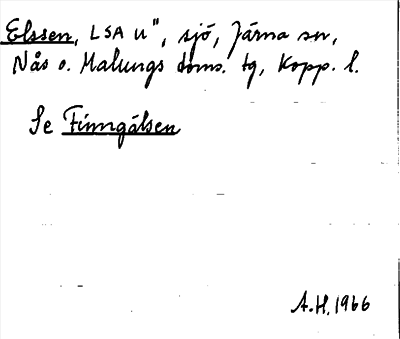 Elssen, LSA U", sjö, Järna sn,
Nås o. Malungs doms. tg, Kopp. l.
Se Finngälsen
A.H. 1966